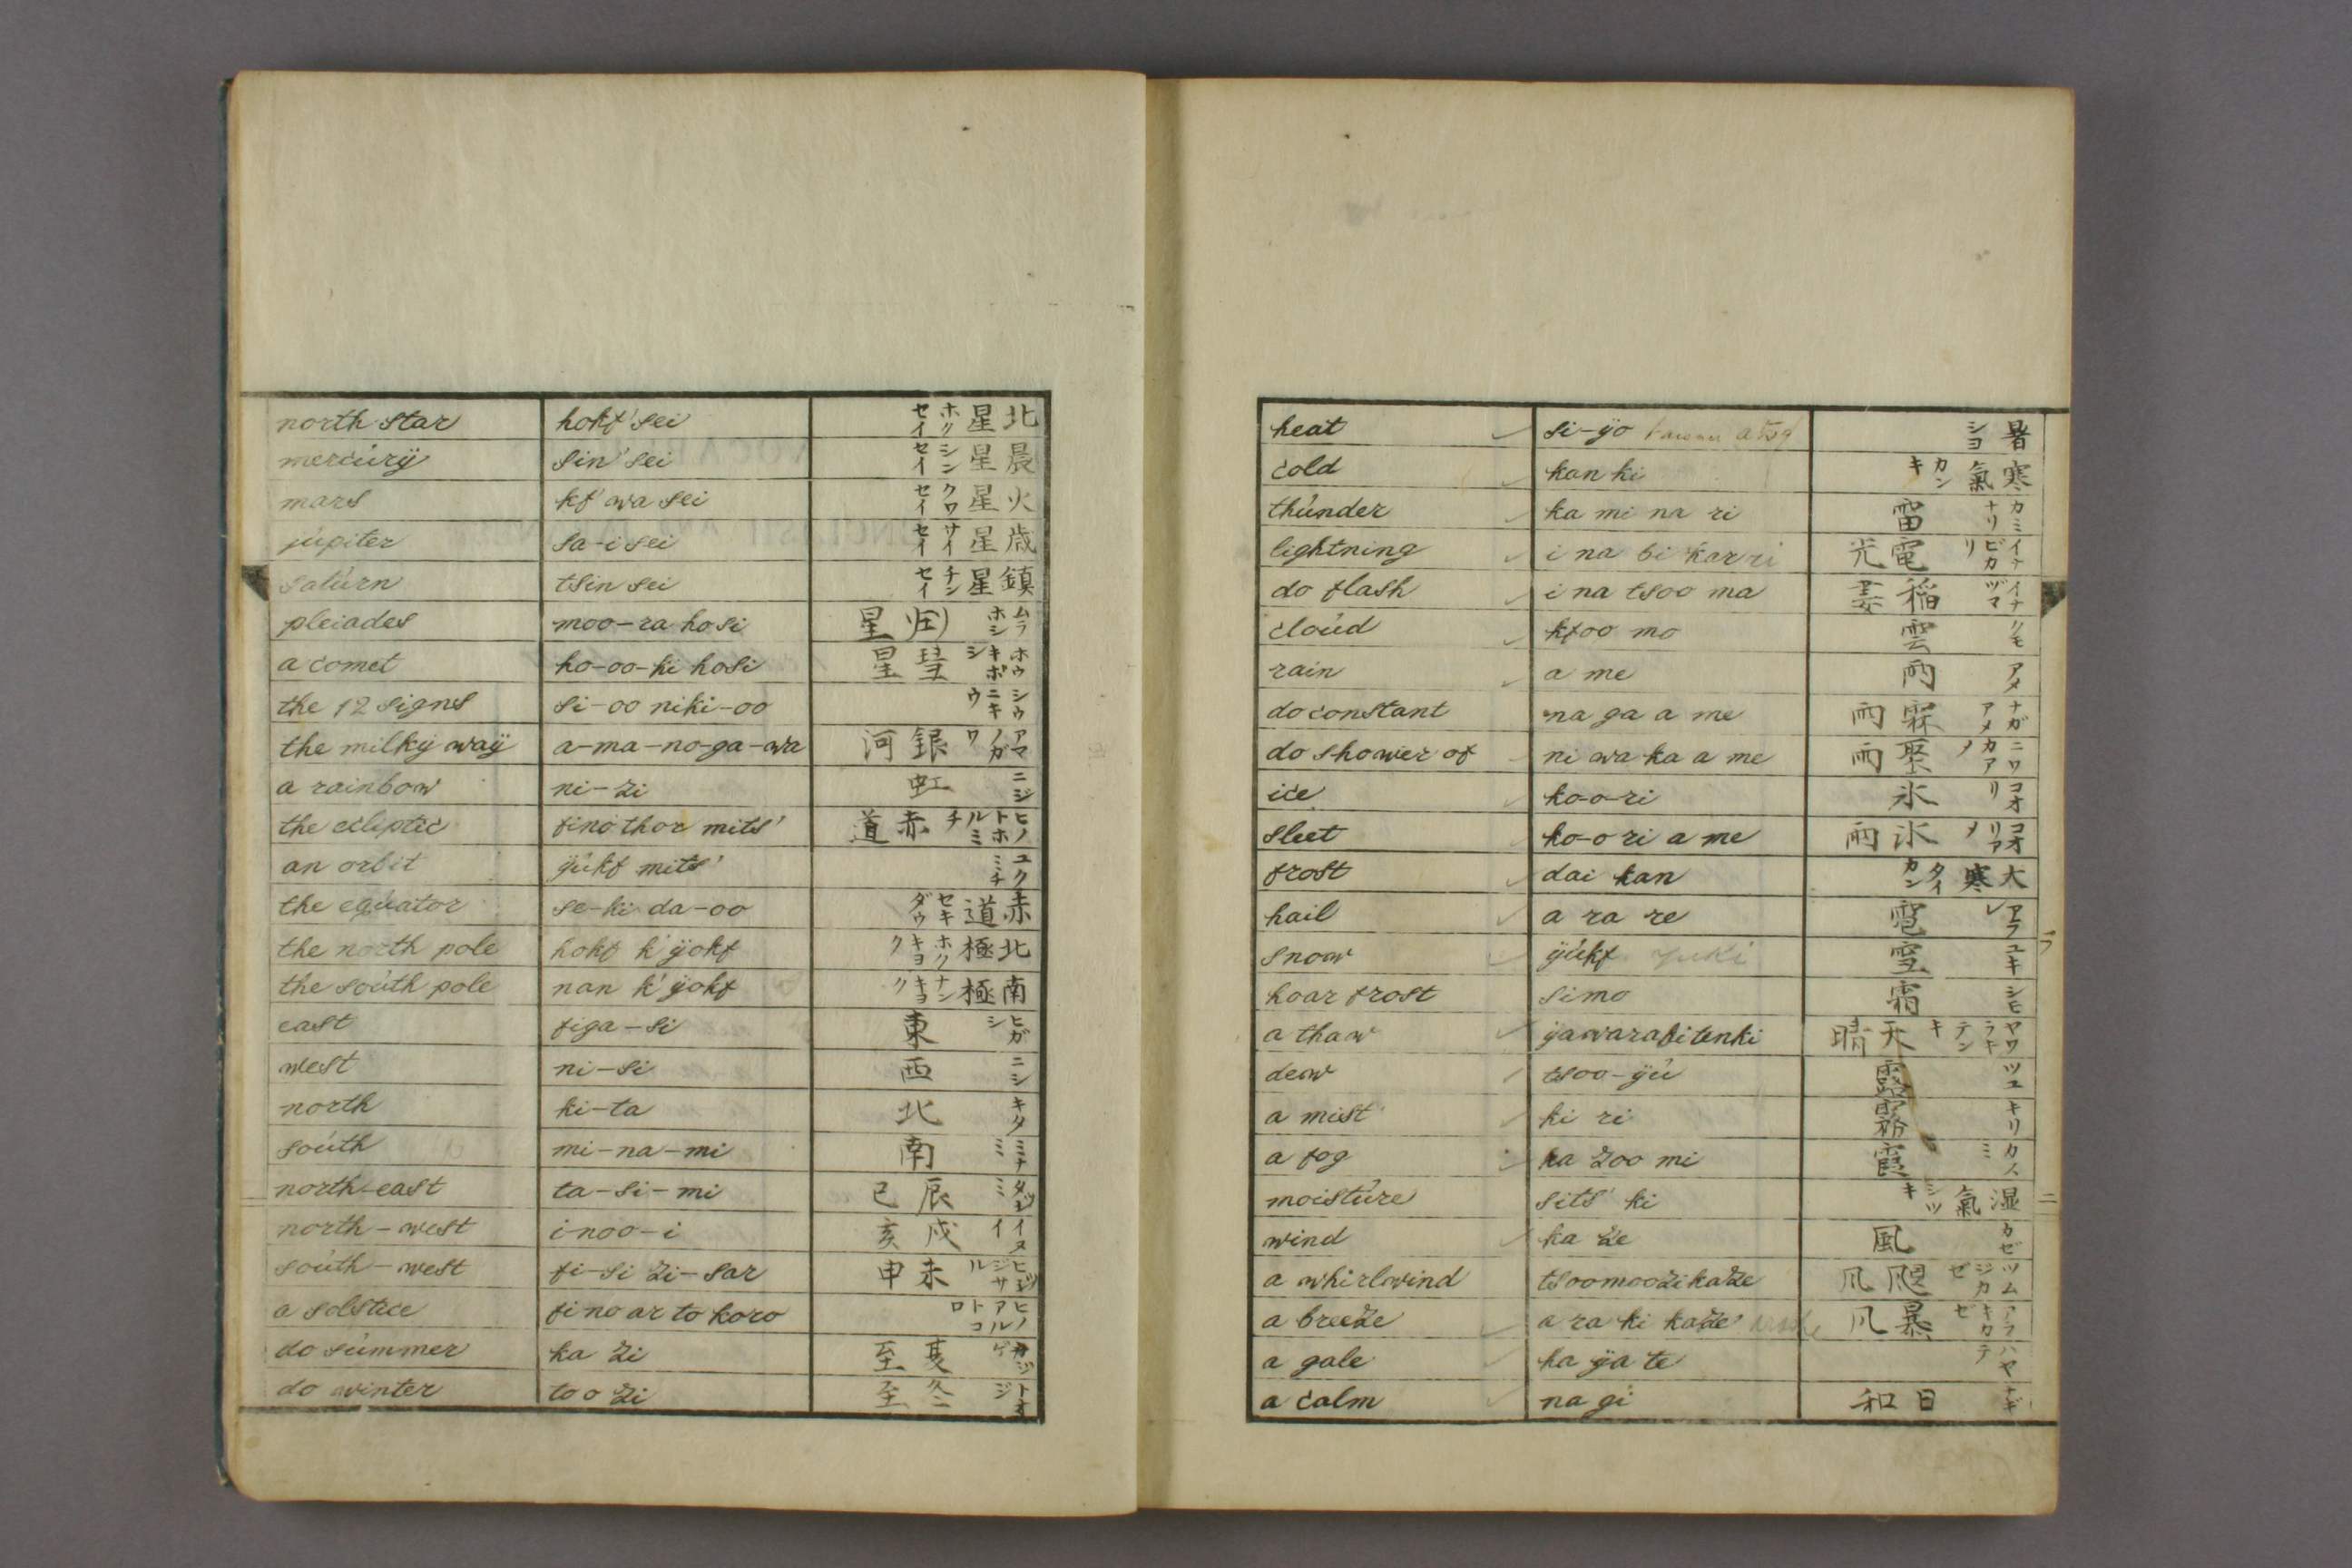 north star hokf' sei 北星 ホク セイ
mercúrÿ sin' sei 晨星 シン セイ
mars kf' wa sei 火星 クワ セイ
júpiter sa-i sei 歳星 サイ セイ
satúrn tsin sei 鎮星 チン セイ
pleiades moo-ra hosi 星 ムラ ホシ
a comet ho-oo-ki hosi 彗星 ホウ キボ シ
the 12 signs si-oo niki-oo シウ ニキ ウ
the milkÿ waÿ a-ma-no-ga-wa 銀河 アマ ノガ ワ
a rainbow ni-zi 虹 ニジ
the ecliptic fino thor mits' 赤道 ヒノ トホ ルミ チ
an orbit ÿúkf mits' ユク ミチ
the eqúator se-ki da-oo 赤道 セキ ダウ
the north pole hokf k'ÿokf 北極 ホク キヨ ク
the soúth pole nan k'ÿokf 南極 ナン キヨ ク
east figa-si 東 ヒガ シ
west ni-si 西 ニシ
north ki-ta 北 キタ
soúth mi-na-mi 南 ミナ ミ
north-east ta-si-mi 辰巳 タツ ミ
north-west i-noo-i 戌亥 イヌ イ
soúth-west fi-si zi-sar 未申 ヒツ ジサ ル
a solstice fi no ar to koro ヒノ アル トコ ロ
do súmmer ka zi 夏至 カジ ゲ
do winter too zi 冬至 トオ ジ
heat si-ÿo 暑 シヨ
cold kan ki 寒氣 カン キ
thúnder ka mi na ri 雷 カミ ナリ
lightning i na bi kar ri 電光 イナ ビカ リ
do flash i na tsoo ma 稲妻 イナ ヅマ
cloúd kfoo mo 雲 クモ
rain a me 雨 アメ
do constant na ga a me 霖雨 ナガ アメ
do shower of ni wa ka a me 聚雨 ニワ カア メ
ice ko-o-ri 氷 コオ リ
sleet ko-o ri a me 氷雨 コオ リア メ
frost dai kan 大寒 タイ カン
hail a ra re 雹 アラ レ
snow ÿúkf yuki 雪 ユキ
hoar frost simo 霜 シモ
a thaw ÿawarafitenki 天晴 ヤワ ラキ テン キ
dew tsoo-ÿú 露 ツユ
a mist ki ri 霧 キリ
a fog ka zoo mi 霞 カス ミ
moistúre sits' ki 湿氣 シツ キ
二
wind ka ze 風 カゼ
a whirlwind tsoomoozikaze ツム ジカ ゼ
a breeze a ra ki kaze 暴风 アラ キカ ゼ
a gale ha ÿa te ハヤ テ
a calm na gi 日和 ナギ